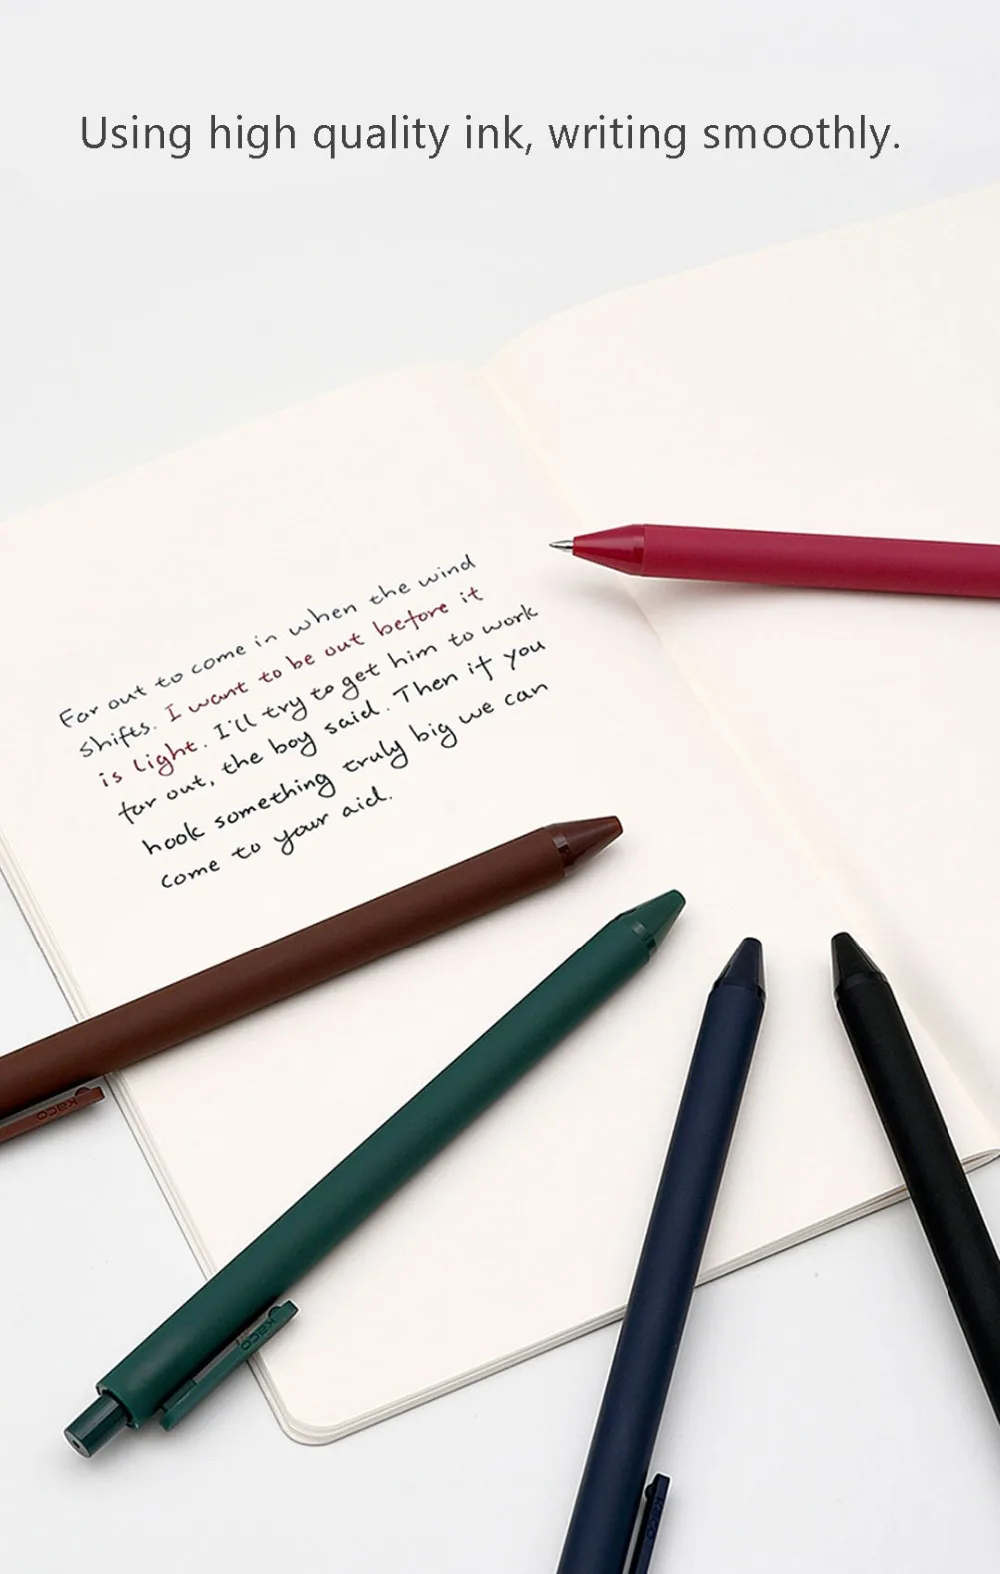 Using high quality ink, writing smoothly.
Far out to come in when the wind
shifts. I want to be out before it
is light. I'll try to get him to work
far out, the boy said. Then if you
hook something truly big we can
come to your aid.
KACO
KACO
KACO